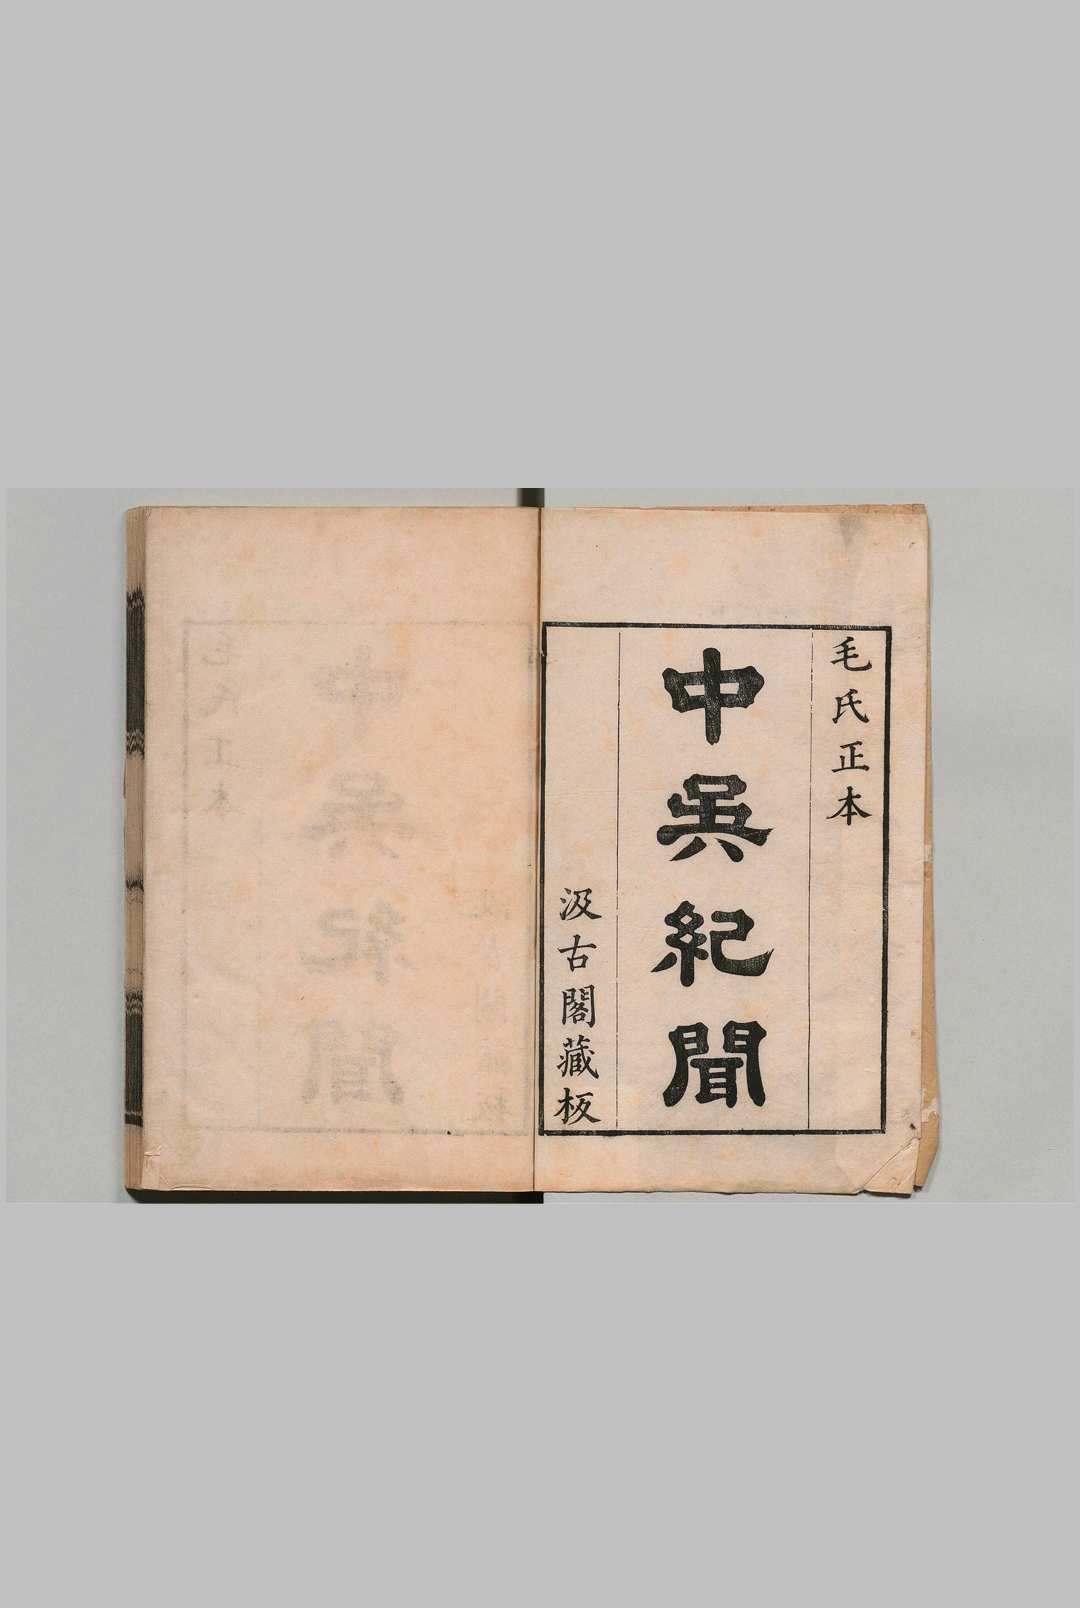 毛氏正本
中吳紀聞
汲古閣藏板